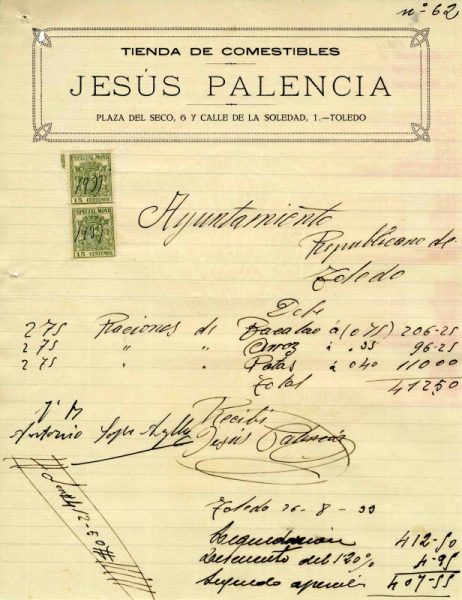 nº 62
TIENDA DE COMESTIBLES
JESÚS PALENCIA
PLAZA DEL SECO, 6 Y CALLE DE LA SOLEDAD, 1.—TOLEDO
ESPECIAL MOVIL
15 CENTIMOS
ESPECIAL MOVIL
15 CENTIMOS
Ayuntamiento
Republicano de
Toledo
Debe
275 Raciones de Bacalao á (0 75) 206-25
275 " " Arroz á .35 96-25
275 " " Patas á 0 40 110 00
Total 412 50
Recibí
Antonio
Jesús Palencia
Toledo 26-8-
412-50
Descuento del 1'20% 4-95
407-55